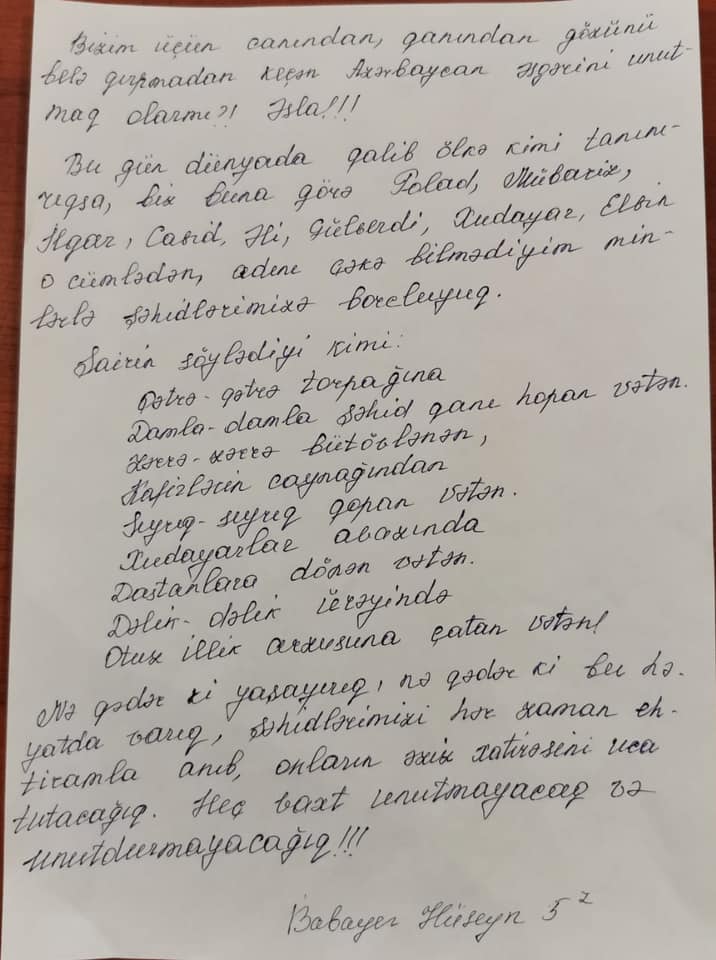 Bizim üçün canından, qanından gözünü
belə qırpmadan keçən Azərbaycan əsgərini unut-
maq olarmı?! Əsla!!!
Bu gün dünyada qalib ölkə kimi tanını-
rıqsa, biz buna görə Polad, Mübariz,
İlqar, Cavid, Əli, Gülverdi, Xudayar, Elvin
o cümlədən, adını çəkə bilmədiyim min-
lərlə şəhidlərimizə borcluyuq.
Şairin söylədiyi kimi:
Qətrə-qətrə torpağına
Damla-damla şəhid qanı hopan vətən.
Zərrə-zərrə bütövlənən,
Kafirlərin caynağından
Sıyrıq-sıyrıq qopan vətən.
Xudayarlar avazında
Dastanlara dönən vətən.
Dəlik-dəlik ürəyində
Otuz illik arzusuna çatan vətən!
Nə qədər ki yaşayırıq, nə qədər ki bu hə-
yatda varıq, şəhidlərimizi hər zaman eh-
tiramla anıb, onların əziz xatirəsini uca
tutacağıq. Heç vaxt unutmayacaq və
unutdurmayacağıq!!!
Babayev Hüseyn 5²